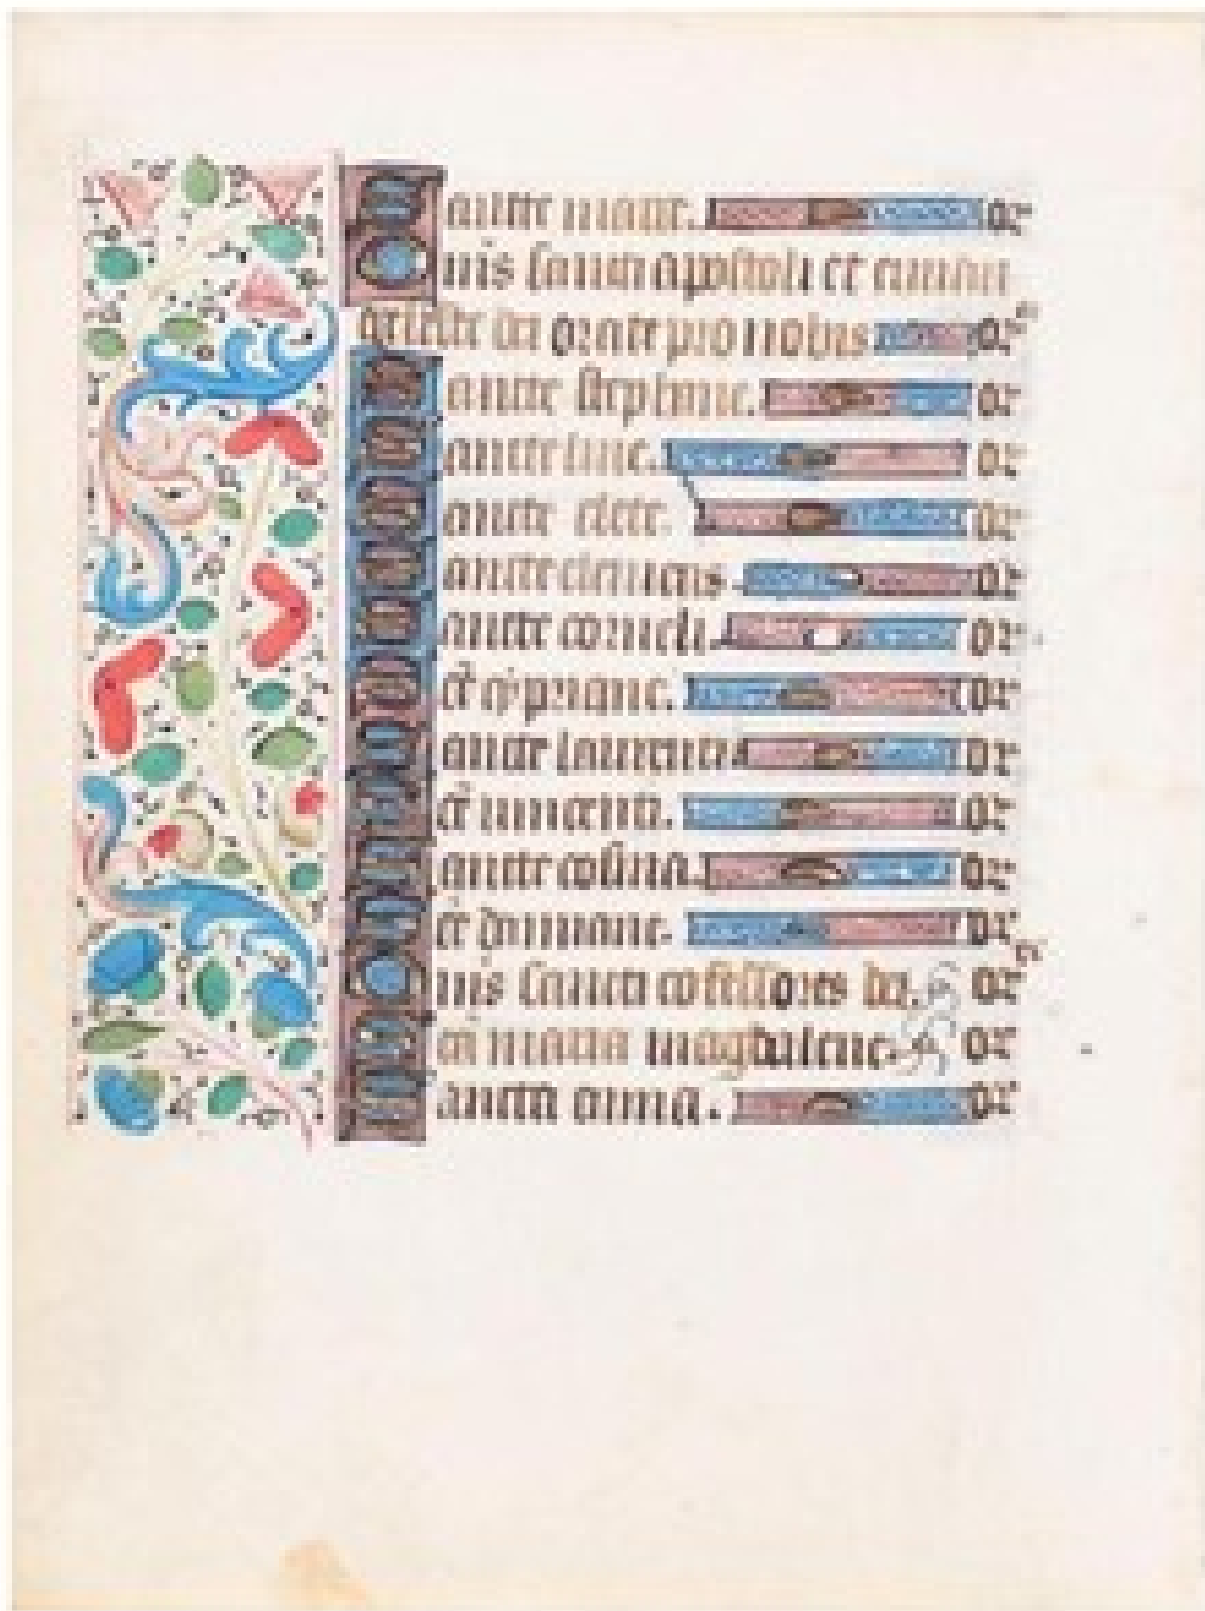 Sancte marce. or
Omnis sancti apostoli et euuan
geliste dei orate pro nobis or
Sancte stephane. or
Sancte line. or
Sancte clete. or
Sancte clemens or
Sancte corneli. or
Et cypriane. or
Sancte laurenti or
Et vincenti. or
Sancte cosma. or
Et damiane. or
Omnis sancti cofessores dei. or
maria magdalene. or
Sancta anna. or